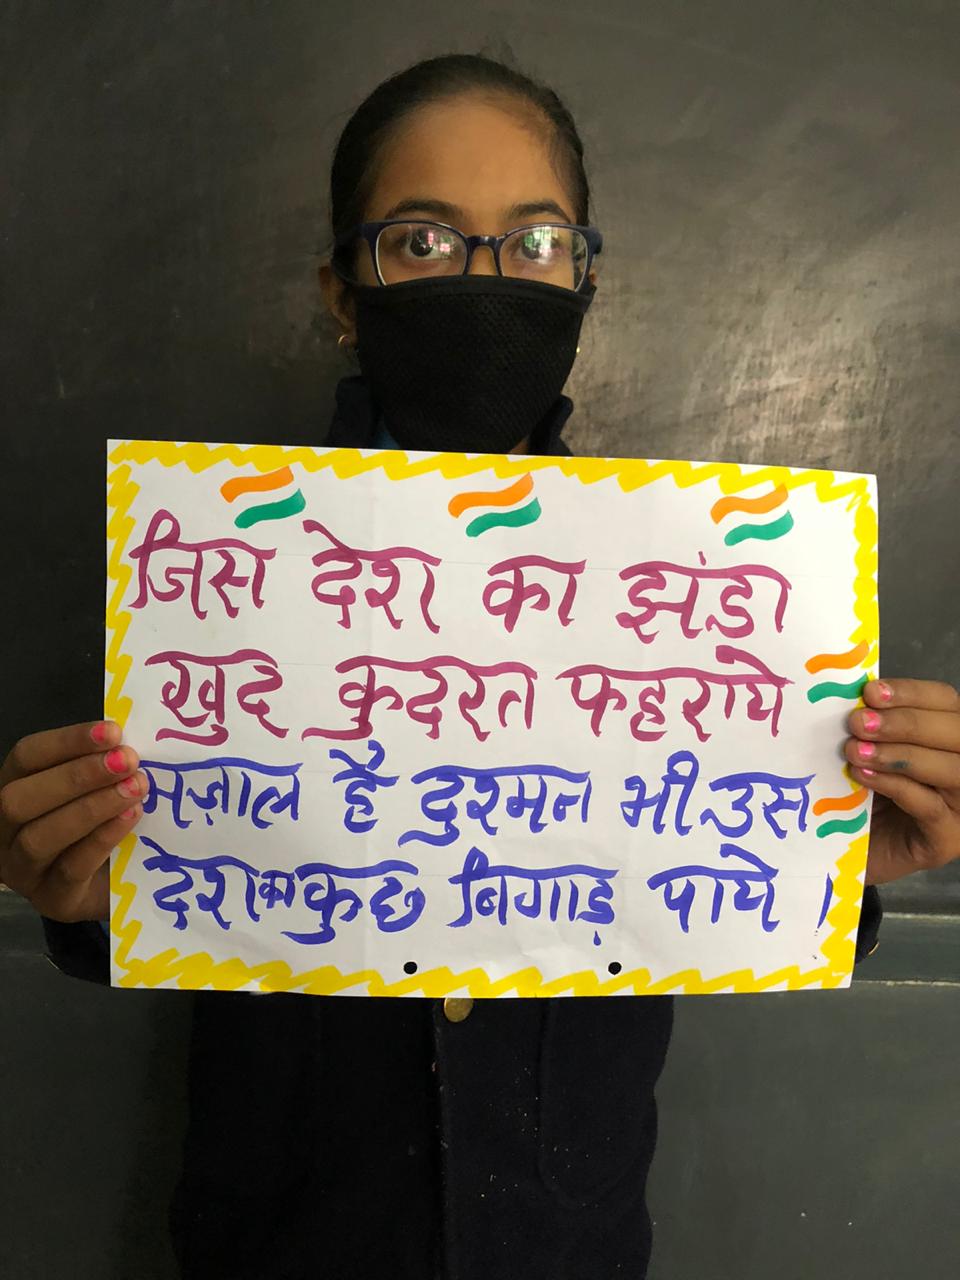 जिस देश का झंडा
खुद कुदरत फहराये
मज़ाल है दुश्मन भी उस
देश का कुछ बिगाड़ पाये ।